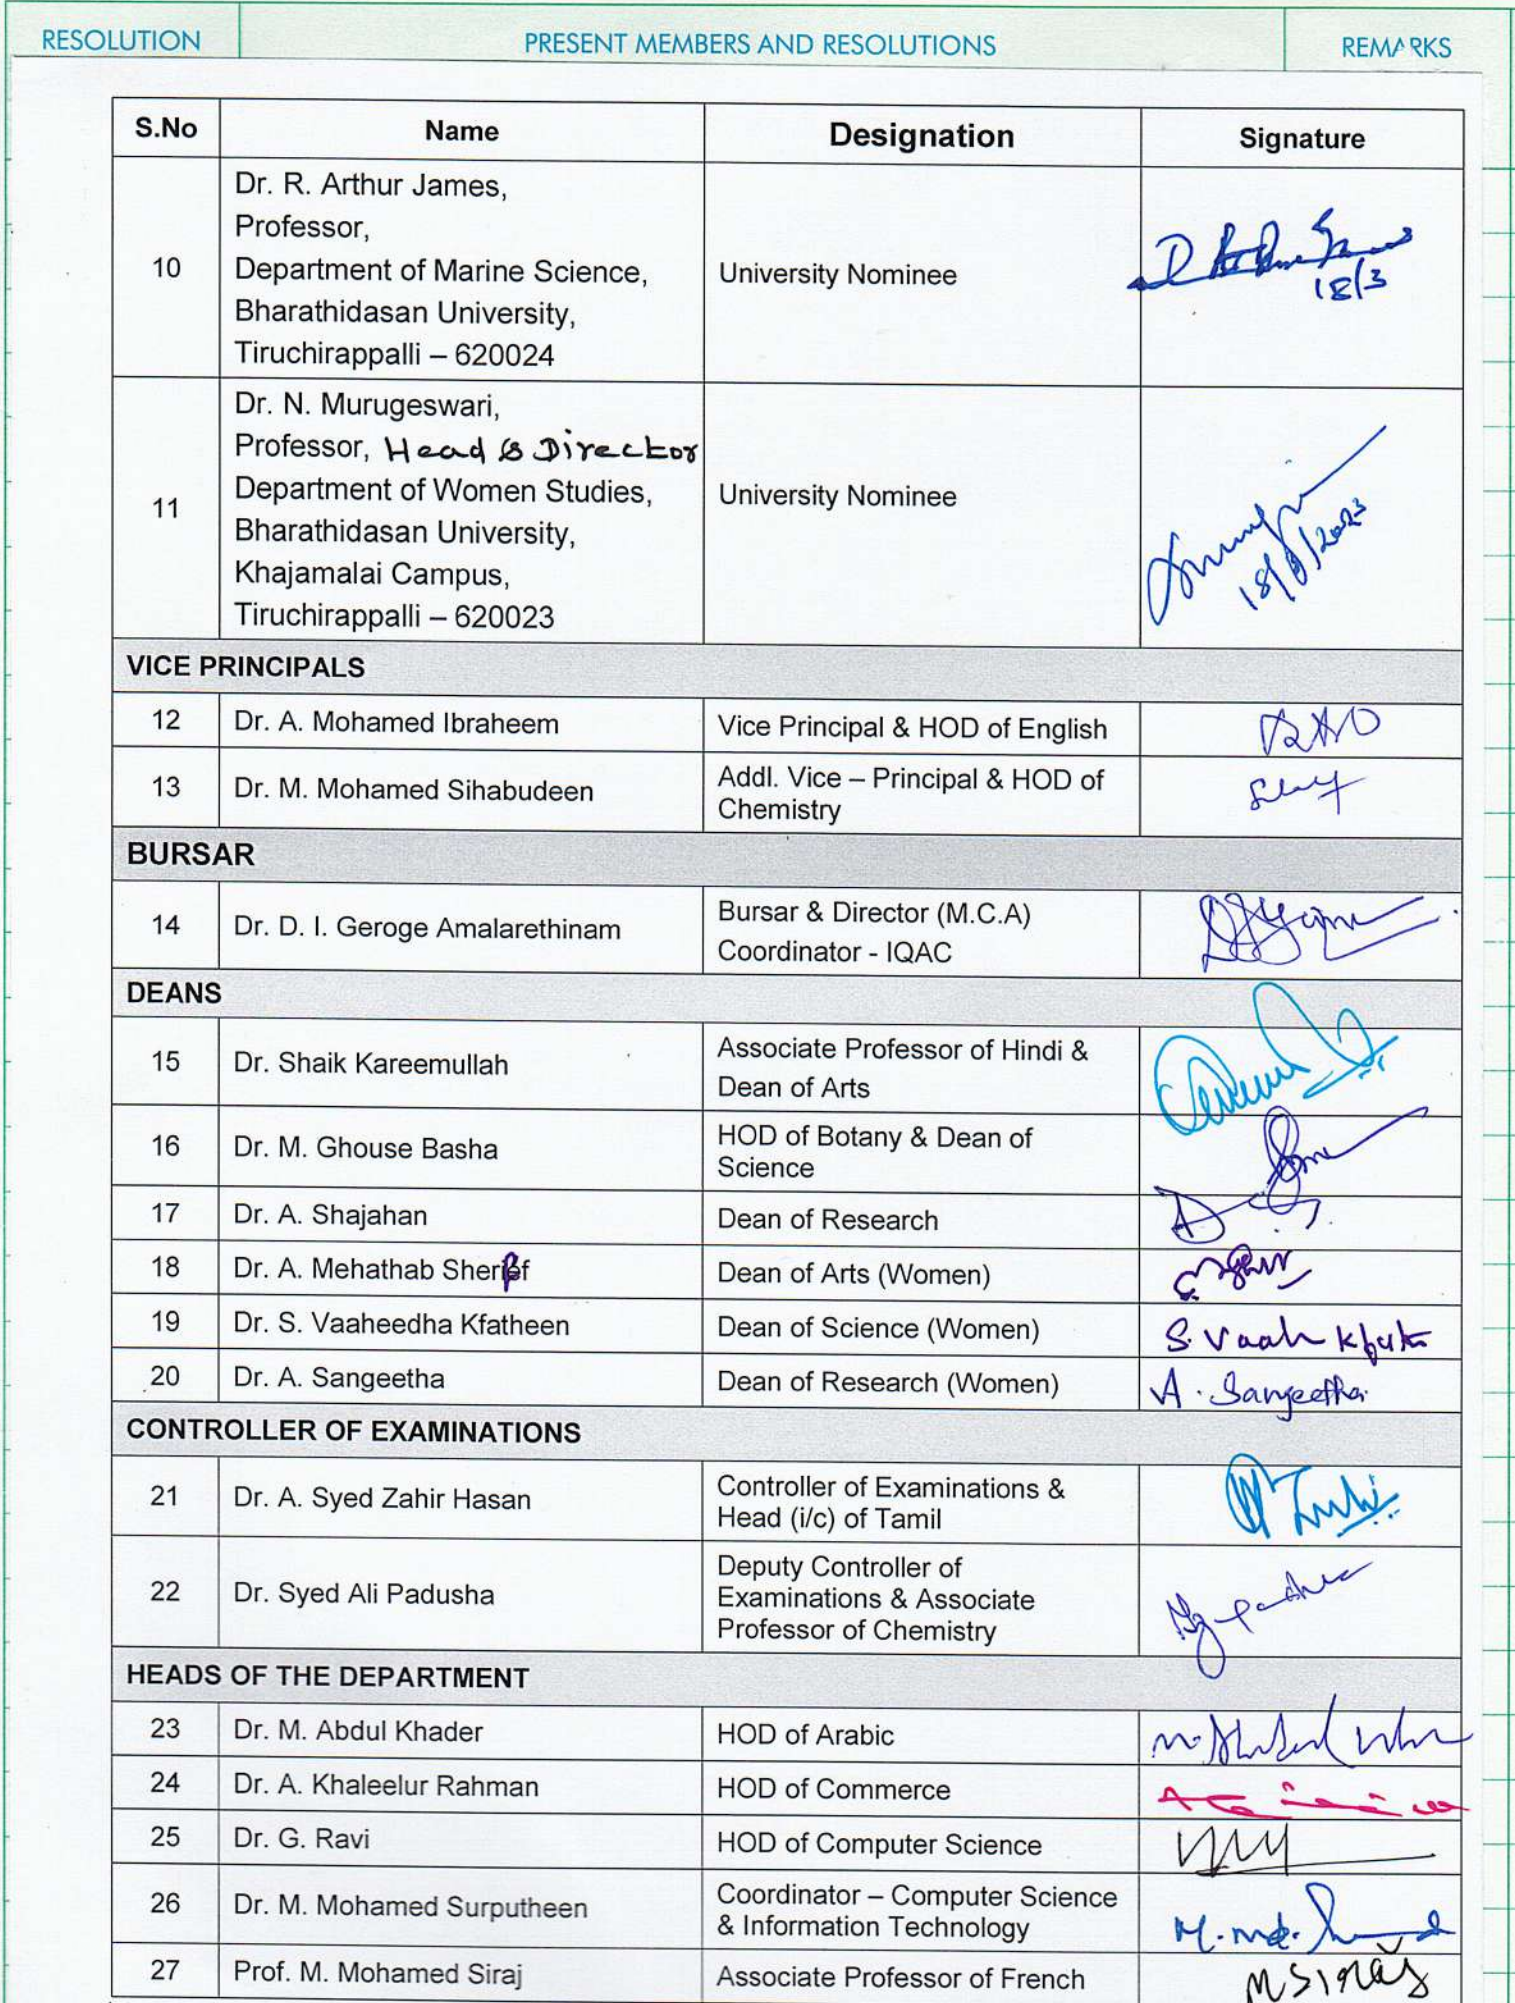 RESOLUTION PRESENT MEMBERS AND RESOLUTIONS REMARKS
S.No Name Designation Signature
10
Dr. R. Arthur James,
Professor,
Department of Marine Science,
Bharathidasan University,
Tiruchirappalli – 620024
University Nominee
18/3
11
Dr. N. Murugeswari,
Professor, Head & Director
Department of Women Studies,
Bharathidasan University,
Khajamalai Campus,
Tiruchirappalli – 620023
University Nominee
VICE PRINCIPALS
12 Dr. A. Mohamed Ibraheem Vice Principal & HOD of English
13 Dr. M. Mohamed Sihabudeen Addl. Vice – Principal & HOD of
Chemistry
BURSAR
14 Dr. D. I. Geroge Amalarethinam Bursar & Director (M.C.A)
Coordinator - IQAC
DEANS
15 Dr. Shaik Kareemullah Associate Professor of Hindi &
Dean of Arts
16 Dr. M. Ghouse Basha HOD of Botany & Dean of
Science
17 Dr. A. Shajahan Dean of Research
18 Dr. A. Mehathab Dean of Arts (Women)
19 Dr. S. Vaaheedha Kfatheen Dean of Science (Women) S. Vaah
20 Dr. A. Sangeetha Dean of Research (Women) A. Sangeetha
CONTROLLER OF EXAMINATIONS
21 Dr. A. Syed Zahir Hasan Controller of Examinations &
Head (i/c) of Tamil
22 Dr. Syed Ali Padusha Deputy Controller of
Examinations & Associate
Professor of Chemistry
HEADS OF THE DEPARTMENT
23 Dr. M. Abdul Khader HOD of Arabic
24 Dr. A. Khaleelur Rahman HOD of Commerce
25 Dr. G. Ravi HOD of Computer Science
26 Dr. M. Mohamed Surputheen Coordinator – Computer Science
& Information Technology
27 Prof. M. Mohamed Siraj Associate Professor of French